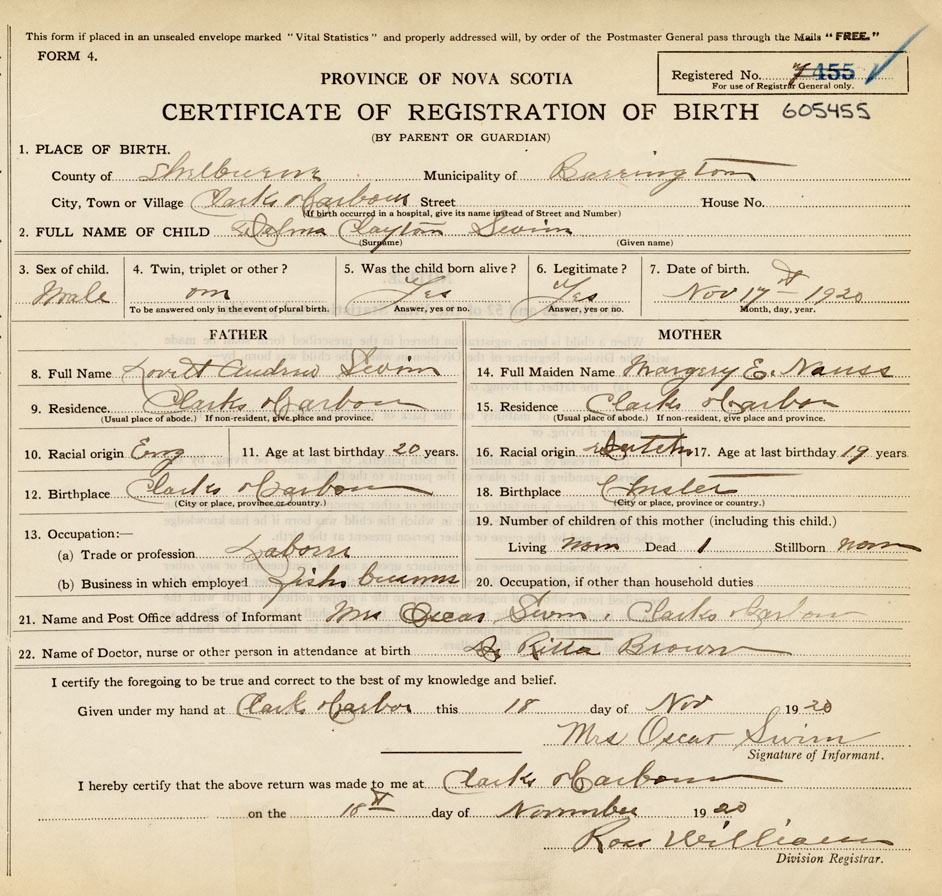 This form if placed in an unsealed envelope marked "Vital Statistics" and properly addressed will, by order of the Postmaster General pass through the Mails "FREE."
FORM 4.
PROVINCE OF NOVA SCOTIA
Registered No. 455
For use of Registrar General only.
CERTIFICATE OF REGISTRATION OF BIRTH 605455
(BY PARENT OR GUARDIAN)
1. PLACE OF BIRTH.
County of Shelburne Municipality of Barrington
City, Town or Village Clarks Harbour Street House No.
(If birth occurred in a hospital, give its name instead of Street and Number)
2. FULL NAME OF CHILD Delma Clayton Swim
(Surname) (Given name)
3. Sex of child. 4. Twin, triplet or other? 5. Was the child born alive? 6. Legitimate? 7. Date of birth.
Male Yes Yes Nov 17 1920
To be answered only in the event of plural birth. Answer, yes or no. Answer, yes or no. Month, day, year.
FATHER MOTHER
8. Full Name Lovitt Andrew Swim 14. Full Maiden Name Margery E. Nauss
9. Residence. Clarks Harbour 15. Residence Clarks Harbor
(Usual place of abode.) If non-resident, give place and province. (Usual place of abode.) If non-resident, give place and province.
10. Racial origin Eng 11. Age at last birthday 20 years. 16. Racial origin Dutch 17. Age at last birthday 19 years.
12. Birthplace Clarks Harbour 18. Birthplace Chester
(City or place, province or country.) (City or place, province or country.)
13. Occupation:— 19. Number of children of this mother (including this child.)
(a) Trade or profession Labourer Living Dead 1 Stillborn
(b) Business in which employed Fish 20. Occupation, if other than household duties
21. Name and Post Office address of Informant Mrs Oscar Swim. Clarks Harbour
22. Name of Doctor, nurse or other person in attendance at birth Ritta Brown
I certify the foregoing to be true and correct to the best of my knowledge and belief.
Given under my hand at Clarks Harbor this 18 day of Nov 1920
Mrs Oscar Swim
Signature of Informant.
I hereby certify that the above return was made to me at Clarks Harbour
on the 18 day of November 1920
Ross Williams
Division Registrar.